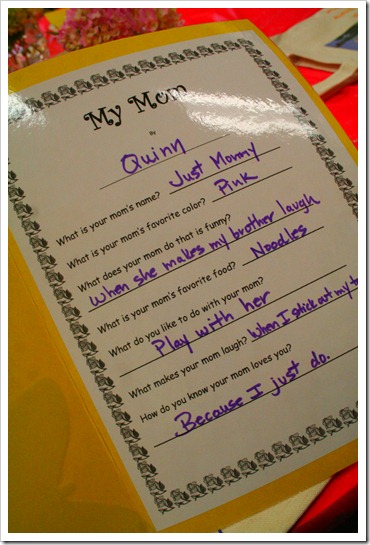 My Mom
By
Quinn
What is your mom's name? Just Mommy
What is your mom's favorite color? Pink
What does your mom do that is funny?
When she makes my brother laugh
What is your mom's favorite food? Noodles
What do you like to do with your mom?
Play with her
What makes your mom laugh? When I stick out my
How do you know your mom loves you?
Because I just do.